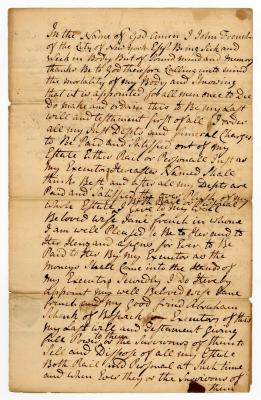 In the Name of God Amen I John French
of the City of New York Esqr Being Sick and
Weck in Body But of Sound mind and memory
thanks Be to God therefore Calling unto mind
the mortality of my Body and Knowing
that it is appointed for all men once to Die
Do make and ordain this to Be my Last
will and testament first of all I order
all my Just Depts and funeral Charges
to Be Paid and Satisfied out of my
Estate Either Rail or Personal Just as
my Executors Hereafter Named Shall
think Best and after all my Dept are
Paid and Satisfied
whole Estate Both Rail or Personal
I Give to my
Beloved wife Jane french in whome
I am well Pleased to Be to Her and to
Her Heirs and asigns for Ever to Be
Paid to Her By my Executor as the
moneys Shall Come into the Hands of
my Executors I Do Hereby
appoint my well Beloved wife Jane
french and my Good frind Abraham
Schenk of Executors of this
my Last will and testament Giving
full Power to them or the Survivors of them to
Sell and Dispose of all my Estate
Both Rail and Personal at Such time
and when Ever they or the Survivors of
them